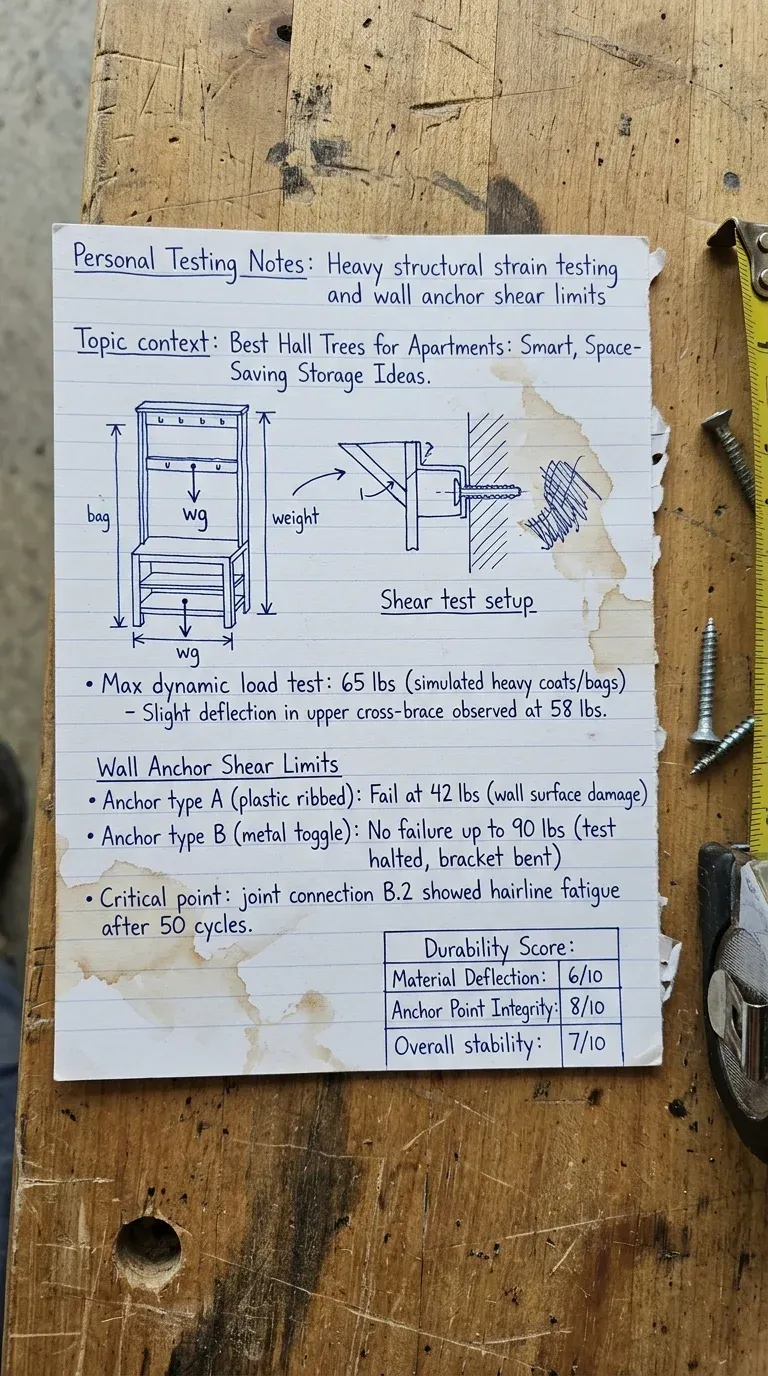 Personal Testing Notes: Heavy structural strain testing
and wall anchor shear limits
Topic context: Best Hall Trees for Apartments: Smart, Space-
Saving Storage Ideas.
bag
wg
weight
wg
1
2
Shear test setup
• Max dynamic load test: 65 lbs (simulated heavy coats/bags)
– Slight deflection in upper cross-brace observed at 58 lbs.
Wall Anchor Shear Limits
• Anchor type A (plastic ribbed): Fail at 42 lbs (wall surface damage)
• Anchor type B (metal toggle): No failure up to 90 lbs (test
halted, bracket bent)
• Critical point: joint connection B.2 showed hairline fatigue
after 50 cycles.
Durability Score:
Material Deflection: 6/10
Anchor Point Integrity: 8/10
Overall stability: 7/10